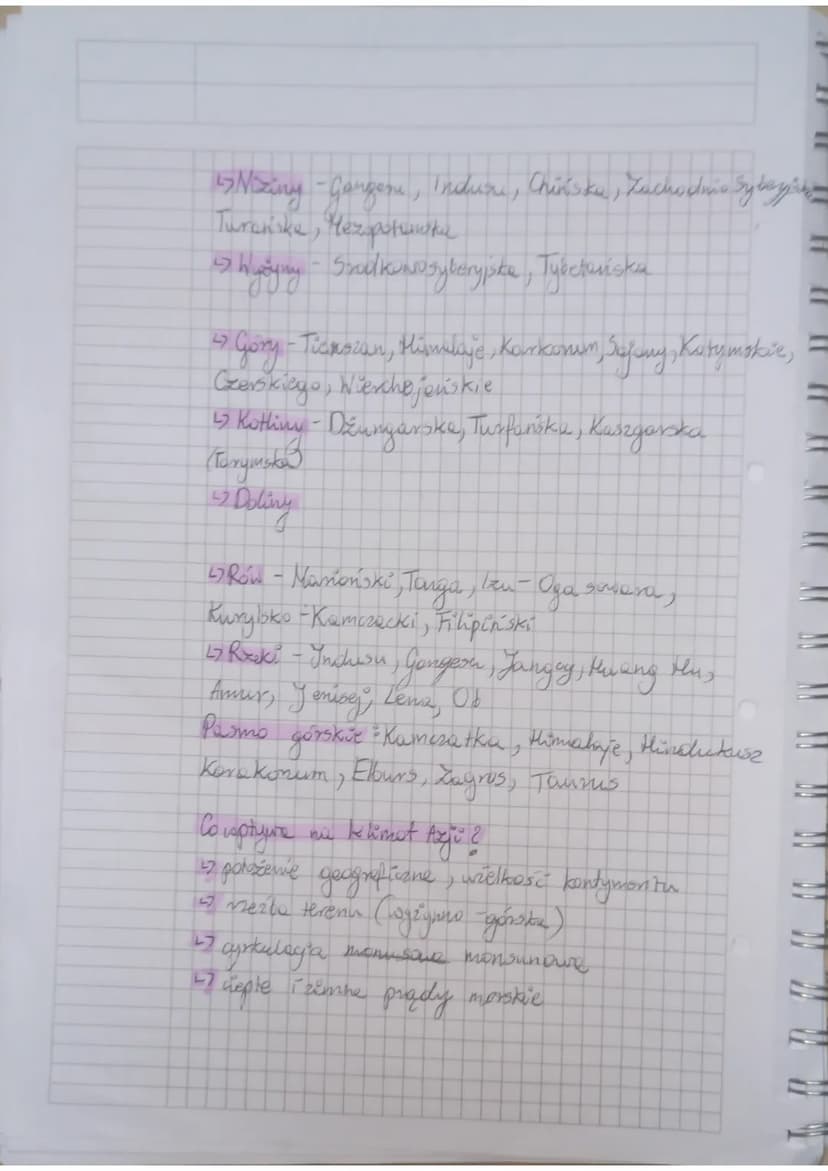 ↳Niziny - Gangesu, Indusu, Chińska, Zachodnio Syberyjska
Turańska, Mezopotamska
↳Wyżyny - Środkowosyberyjska, Tybetańska
↳Góry - Tienszan, Himalaje, Karkorum, Sajany, Kołymskie,
Czerskiego, Wierchojańskie
↳Kotliny - Dżungarska, Turfańska, Kaszgarska
(Tarymska)
↳Doliny
↳Rów - Mariański, Tonga, Izu - Ogasawara,
Kurylsko - Kamczacki, Filipiński
↳Rzeki - Indusu, Gangesu, Jangcy, Huang Hu,
Amur, Jenisej, Lena, Ob
Pasmo górskie: Kamczatka, Himalaje, Hindukusz
Korakorum, Elburs, Zagros, Taurus
Co wpływa na klimat Azji?
↳ położenie geograficzne, wielkość kontymentu
↳ rzeźba terenu (wyżynno - górska)
↳ cyrkulacja monsunowa
↳ ciepłe i zimne prądy morskie